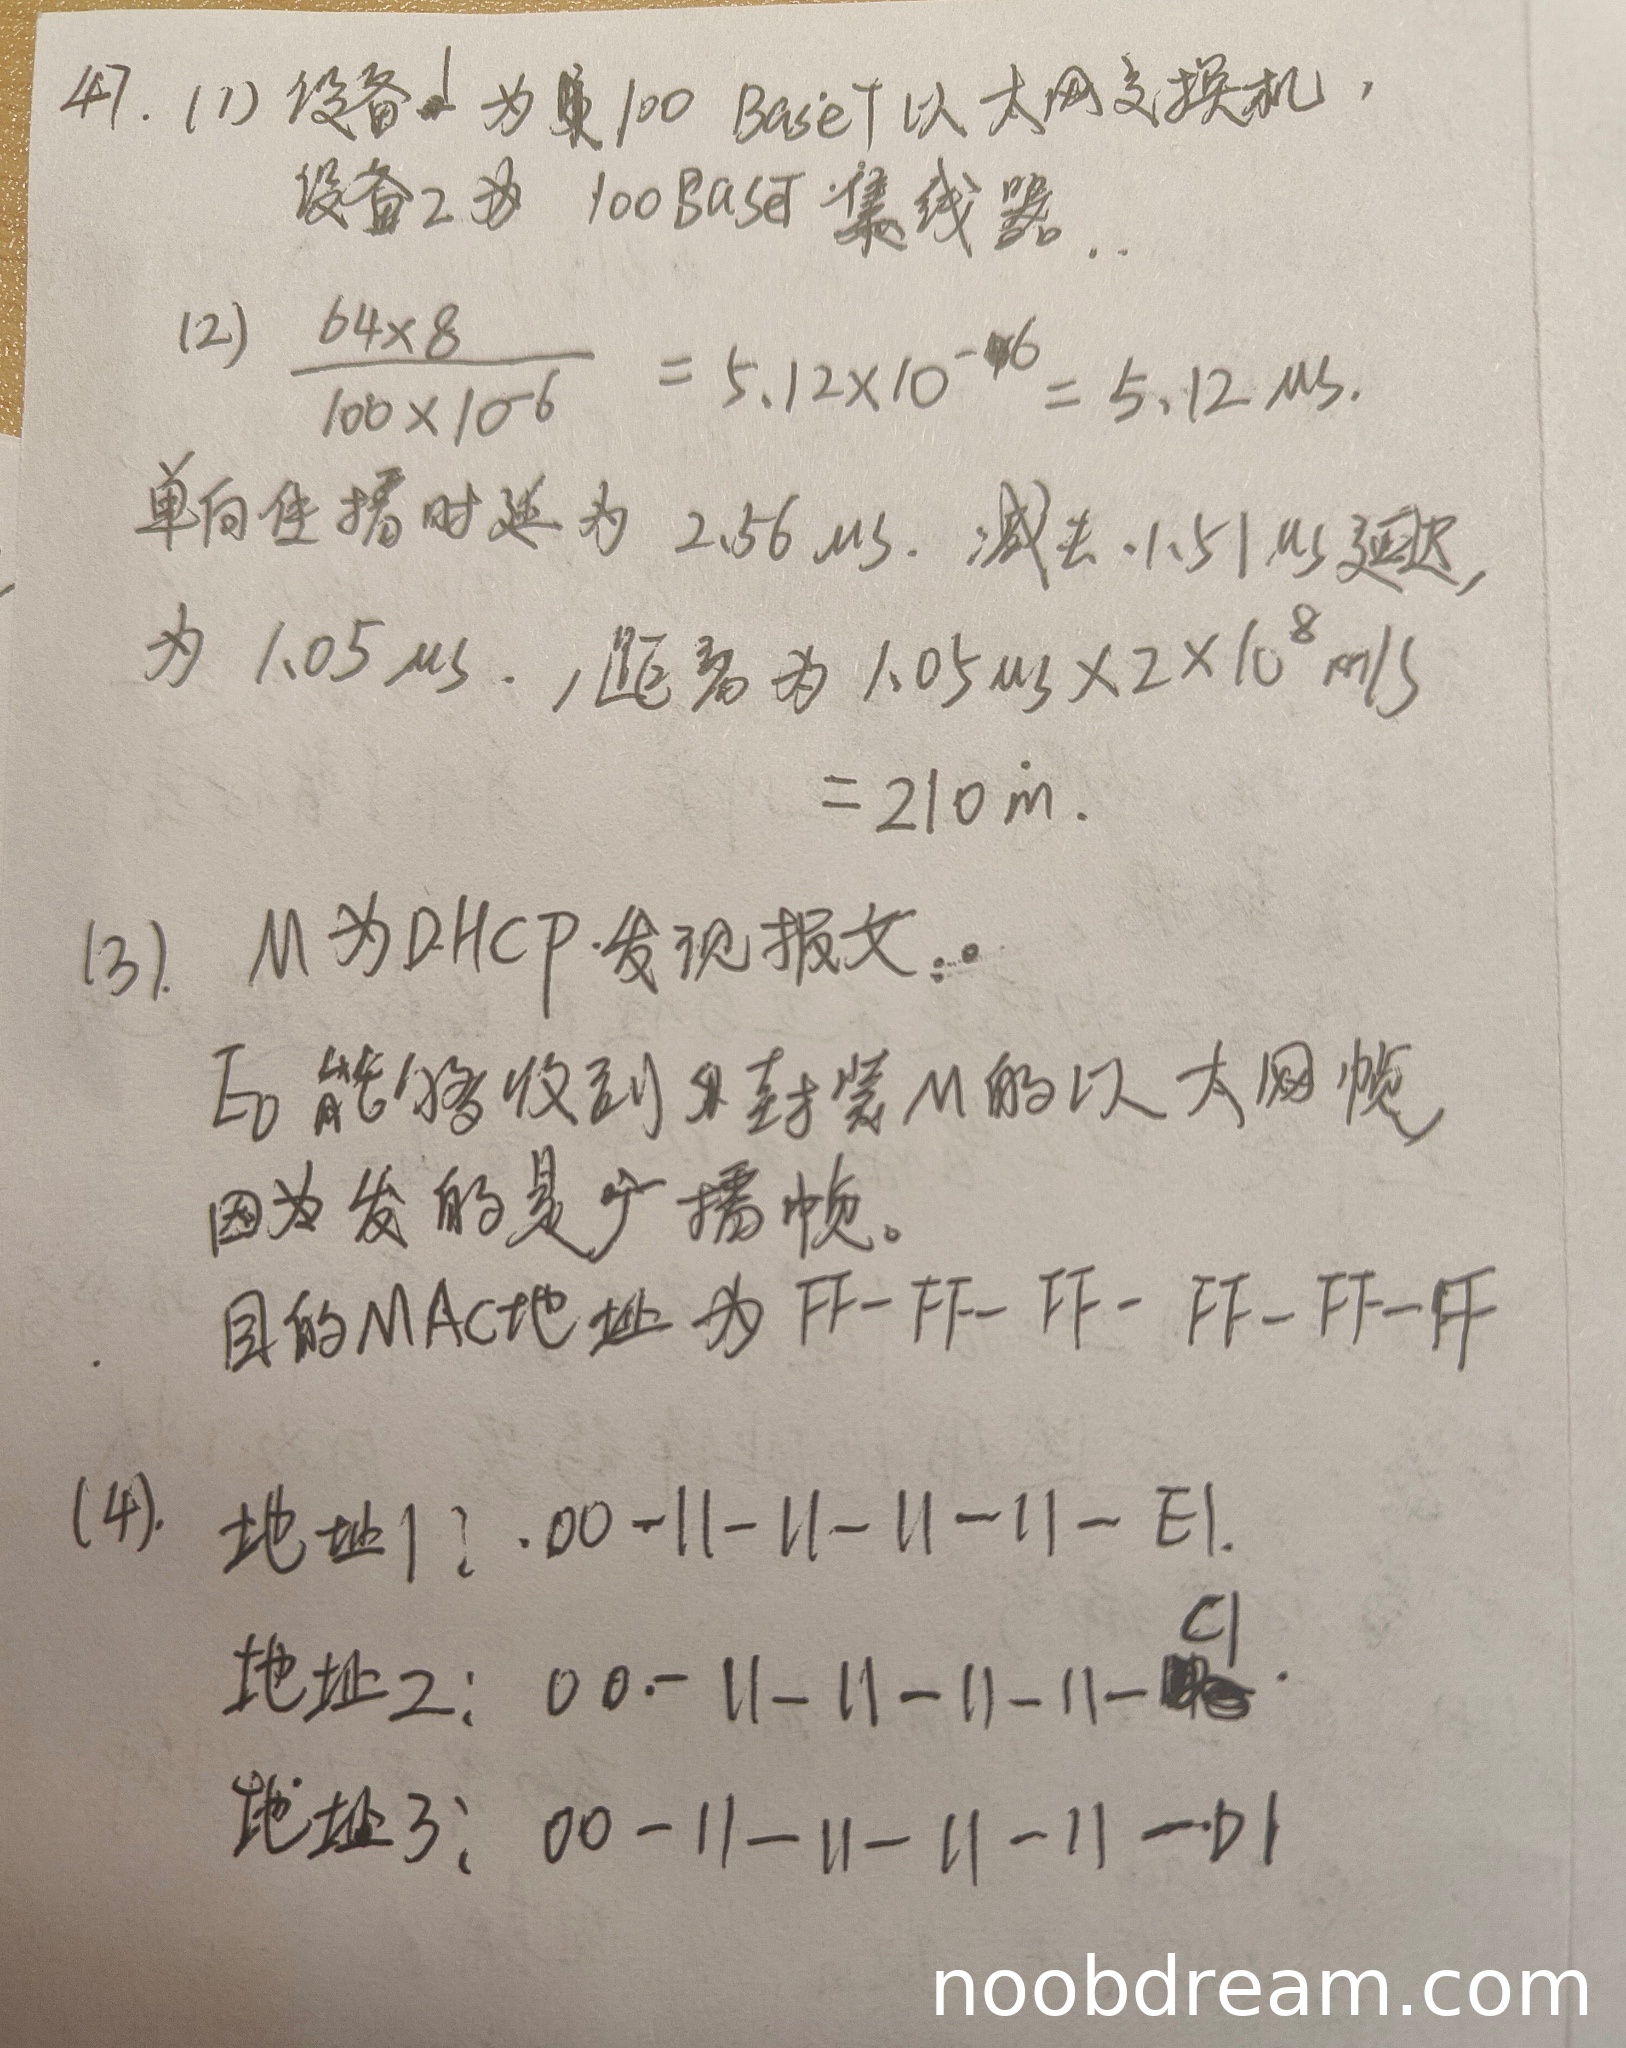 47. (1) 设备1 为 100 BaseT 以太网交换机，
设备2为 100BaseT 集线器..
(2) 64×8 / 100×10-6 = 5.12×10^-6 = 5.12 μs.
单向传播时延为 2.56 μs. 减去 1.51 μs 延迟，
为 1.05 μs. ，距离为 1.05 μs × 2×10^8 m/s
= 210 m.
(3). M 为 DHCP 发现报文。
E0 能够收到 封装 M 的以太网帧，
因为发的是广播帧。
目的MAC地址为 FF-FF-FF-FF-FF-FF
(4). 地址1: 00-11-11-11-11-E1.
地址2: 00-11-11-11-11-C1.
地址3: 00-11-11-11-11-D1
noobdream.com